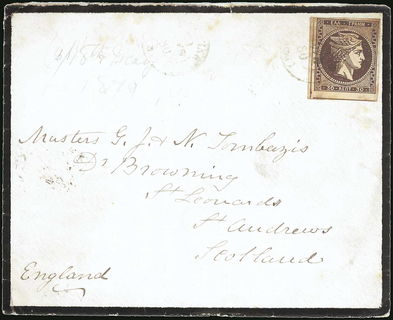 ΕΛΛ. ΓΡΑΜΜ.
30 ΛΕΠΤ. 30
Masters G. J. & N. Tombazis
Dr Browning
St Leonards
St Andrews
Scotland
England